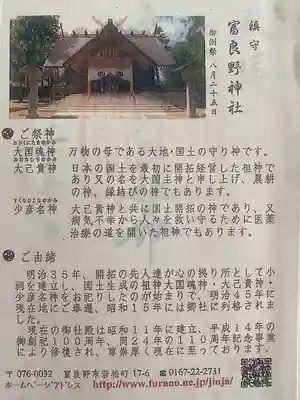 鎮守
富良野神社
御例祭 八月二十五日
ご祭神
おおくにたまのかみ
大国魂神 万物の母である大地・国土の守り神です。
おおなむちのかみ
大己貴神 日本の国土を最初に開拓経営した祖神であり又の名を大国主神と申し上げ、農耕の神、縁結びの神でもあります。
すくなひこなのかみ
少彦名神 大己貴神と共に国土開拓の神であり、又病気不幸から人々を救い守るために医薬治療の道を開いた祖神でもあります。
ご由緒
明治35年、開拓の先人達が心の拠り所として小祠を建立し、国土生成の祖神大国魂神・大己貴神・少彦名神をお祀りしたのが始まりで、明治45年に現在地にご奉遷、昭和15年には郷社に列格されました。
現在の御社殿は昭和11年に建立、平成14年の御創祀100周年、同24年の110周年記念事業により修復され、尊崇厚く現在に至っております。
〒076-0032 富良野市若松町 17-6 ☎0167-22-2731
ホームページアドレス http://www.furano.ne.jp/jinja/